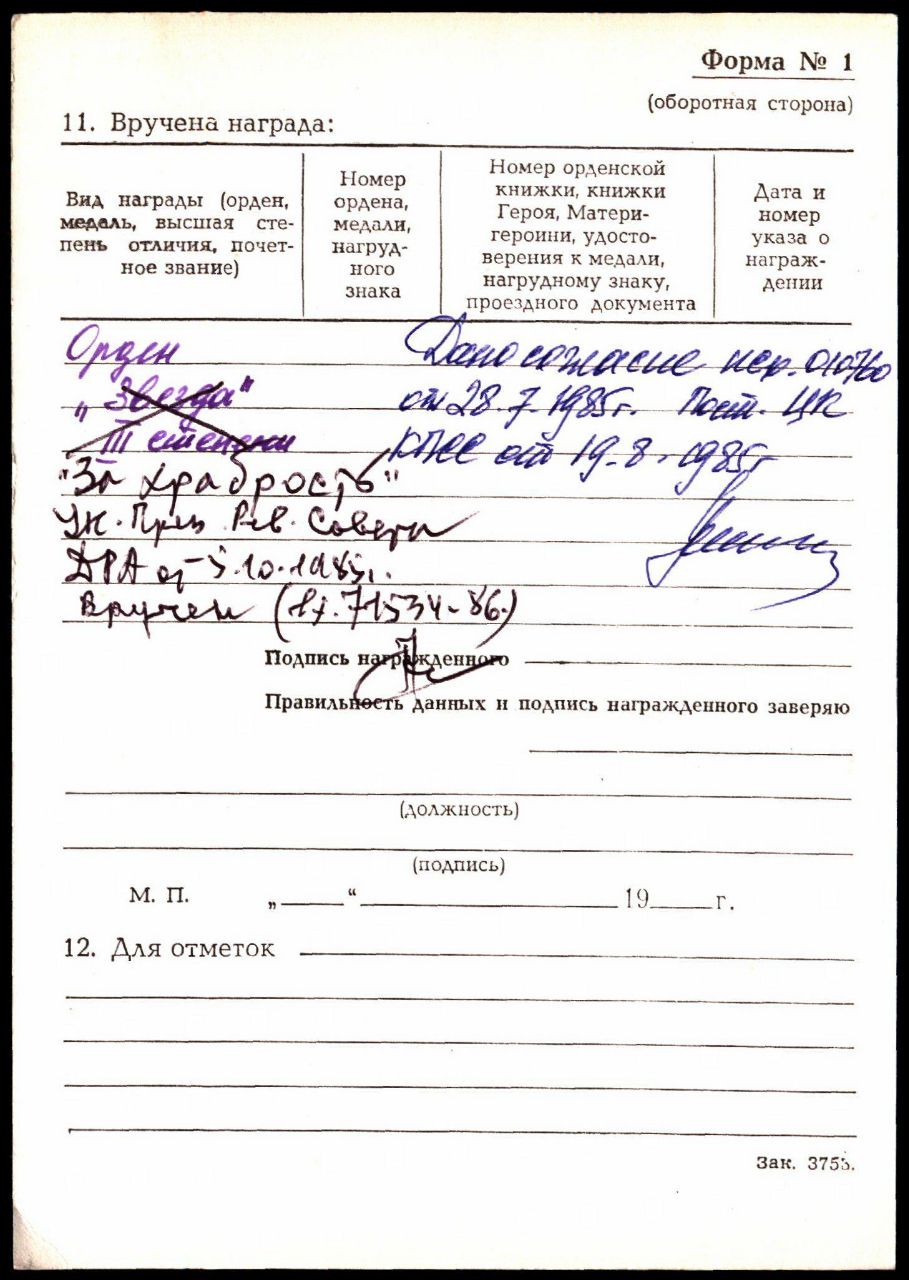 Форма № 1
(оборотная сторона)
11. Вручена награда:
Вид награды (орден,
медаль, высшая сте-
пень отличия, почет-
ное звание)
Номер
ордена,
медали,
нагруд-
ного
знака
Номер орденской
книжки, книжки
Героя, Матери-
героини, удосто-
верения к медали,
нагрудному знаку,
проездного документа
Дата и
номер
указа о
награж-
дении
Орден
„Звезда"
III степени
"За храбрость"
Ук. През. Рев. Совета
ДРА от 5.10.1985г.
Вручен (Вх. 71534-86.)
Дано согласие
от 28.7.1985г. Пост. ЦК
КПСС от 19.8.1985г
Подпись награжденного
Правильность данных и подпись награжденного заверяю
(должность)
(подпись)
М. П. „ “ 19 г.
12. Для отметок
Зак. 3755.